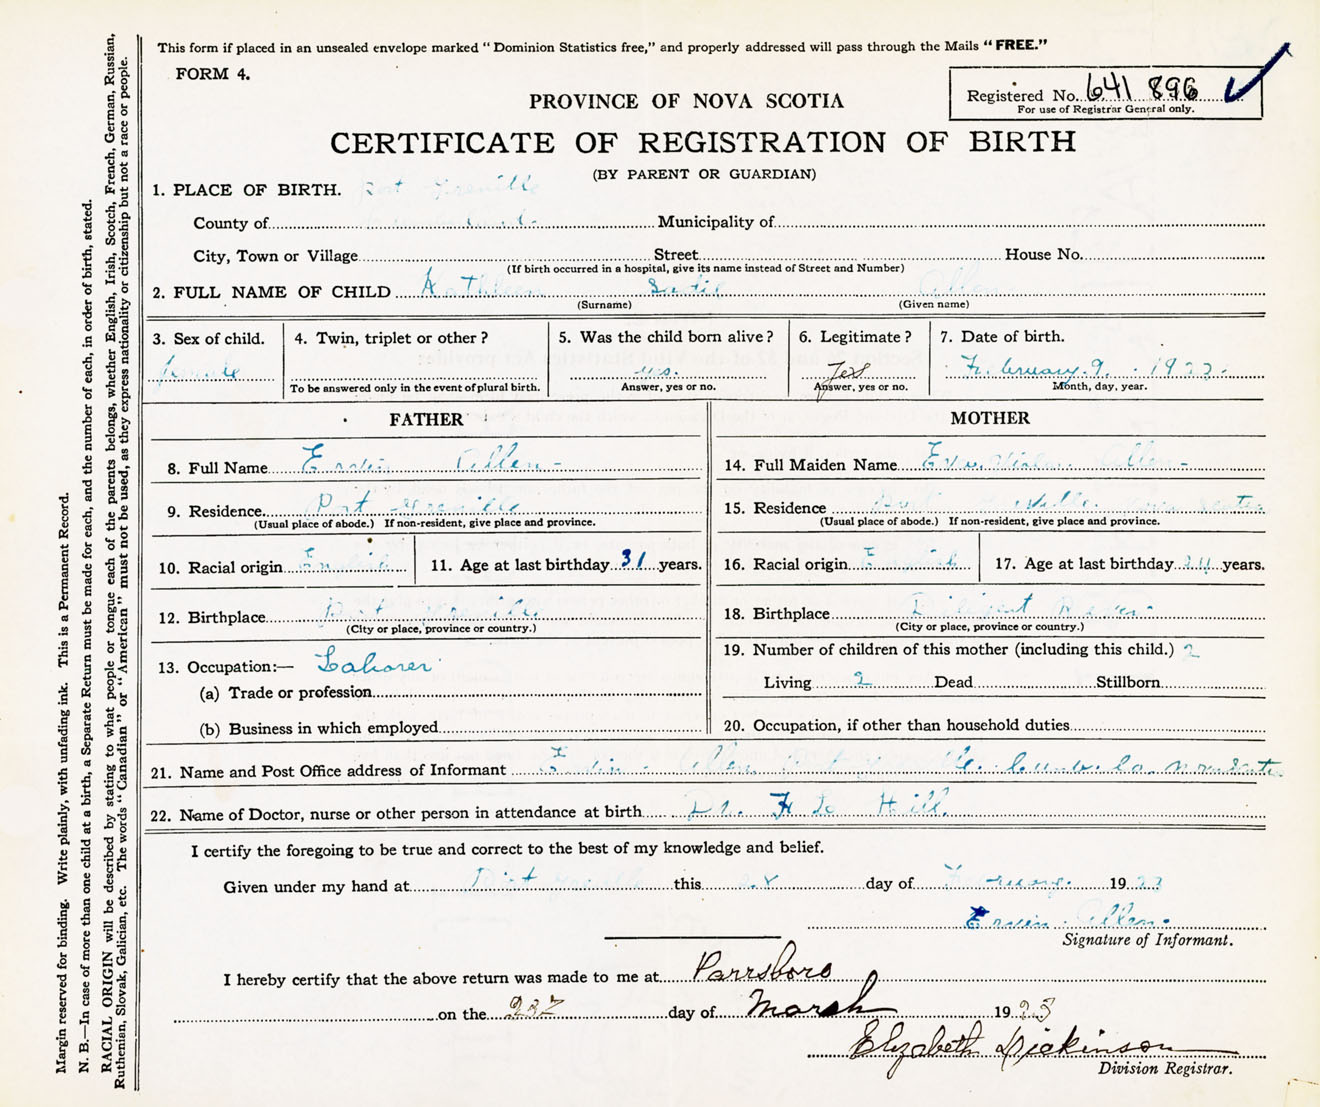 This form if placed in an unsealed envelope marked "Dominion Statistics free," and properly addressed will pass through the Mails "FREE."
FORM 4.
Registered No. 641 896
For use of Registrar General only.
PROVINCE OF NOVA SCOTIA
CERTIFICATE OF REGISTRATION OF BIRTH
(BY PARENT OR GUARDIAN)
1. PLACE OF BIRTH. Port Greville
County of Municipality of
City, Town or Village Street House No.
(If birth occurred in a hospital, give its name instead of Street and Number)
2. FULL NAME OF CHILD Kathleen Sadie Allen
(Surname) (Given name)
3. Sex of child. 4. Twin, triplet or other? 5. Was the child born alive? 6. Legitimate? 7. Date of birth.
female yes. Yes February 9
To be answered only in the event of plural birth. Answer, yes or no. Answer, yes or no. Month, day, year.
FATHER MOTHER
8. Full Name Ervin Allen 14. Full Maiden Name Eva Viola Allen
9. Residence. Port Greville 15. Residence Port Greville Nova Scotia
(Usual place of abode.) If non-resident, give place and province. (Usual place of abode.) If non-resident, give place and province.
10. Racial origin English 11. Age at last birthday 31 years. 16. Racial origin English 17. Age at last birthday years.
12. Birthplace Port Greville 18. Birthplace Diligent River
(City or place, province or country.) (City or place, province or country.)
13. Occupation:— Laborer 19. Number of children of this mother (including this child.) 2
(a) Trade or profession Living 2 Dead Stillborn
(b) Business in which employed 20. Occupation, if other than household duties
21. Name and Post Office address of Informant Ervin Allen Port Greville Cumb. Co. Nova Scotia
22. Name of Doctor, nurse or other person in attendance at birth Dr. Hill
I certify the foregoing to be true and correct to the best of my knowledge and belief.
Given under my hand at Port Greville this day of February 19
Ervin Allen
Signature of Informant.
I hereby certify that the above return was made to me at Parrsboro
on the day of Marsh 19
Elizabeth Dickinson
Division Registrar.
Margin reserved for binding. Write plainly, with unfading ink. This is a Permanent Record.
N. B.—In case of more than one child at a birth, a Separate Return must be made for each, and the number of each, in order of birth, stated.
RACIAL ORIGIN will be described by stating to what people or tongue each of the parents belongs, whether English, Irish, Scotch, French, German, Russian,
Ruthenian, Slovak, Galician, etc. The words "Canadian" or "American" must not be used, as they express nationality or citizenship but not a race or people.